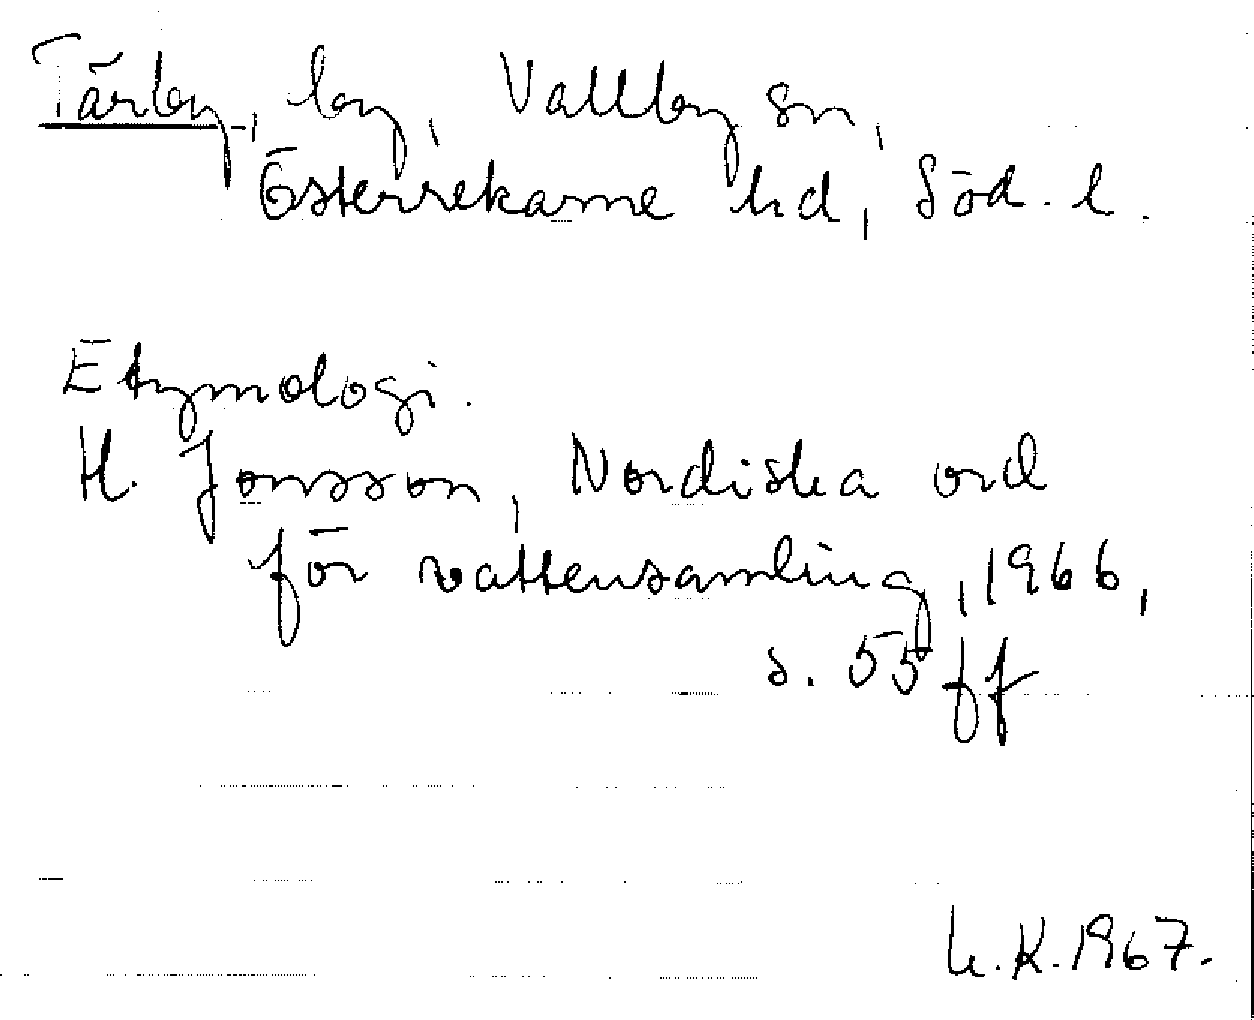 Tärby, by, Vallby sn,
Österrekarne hd, Söd. l.
Etymologi.
H. Jonsson, Nordiska ord
för vattensamling, 1966,
s. 55 ff
U.K. 1967.